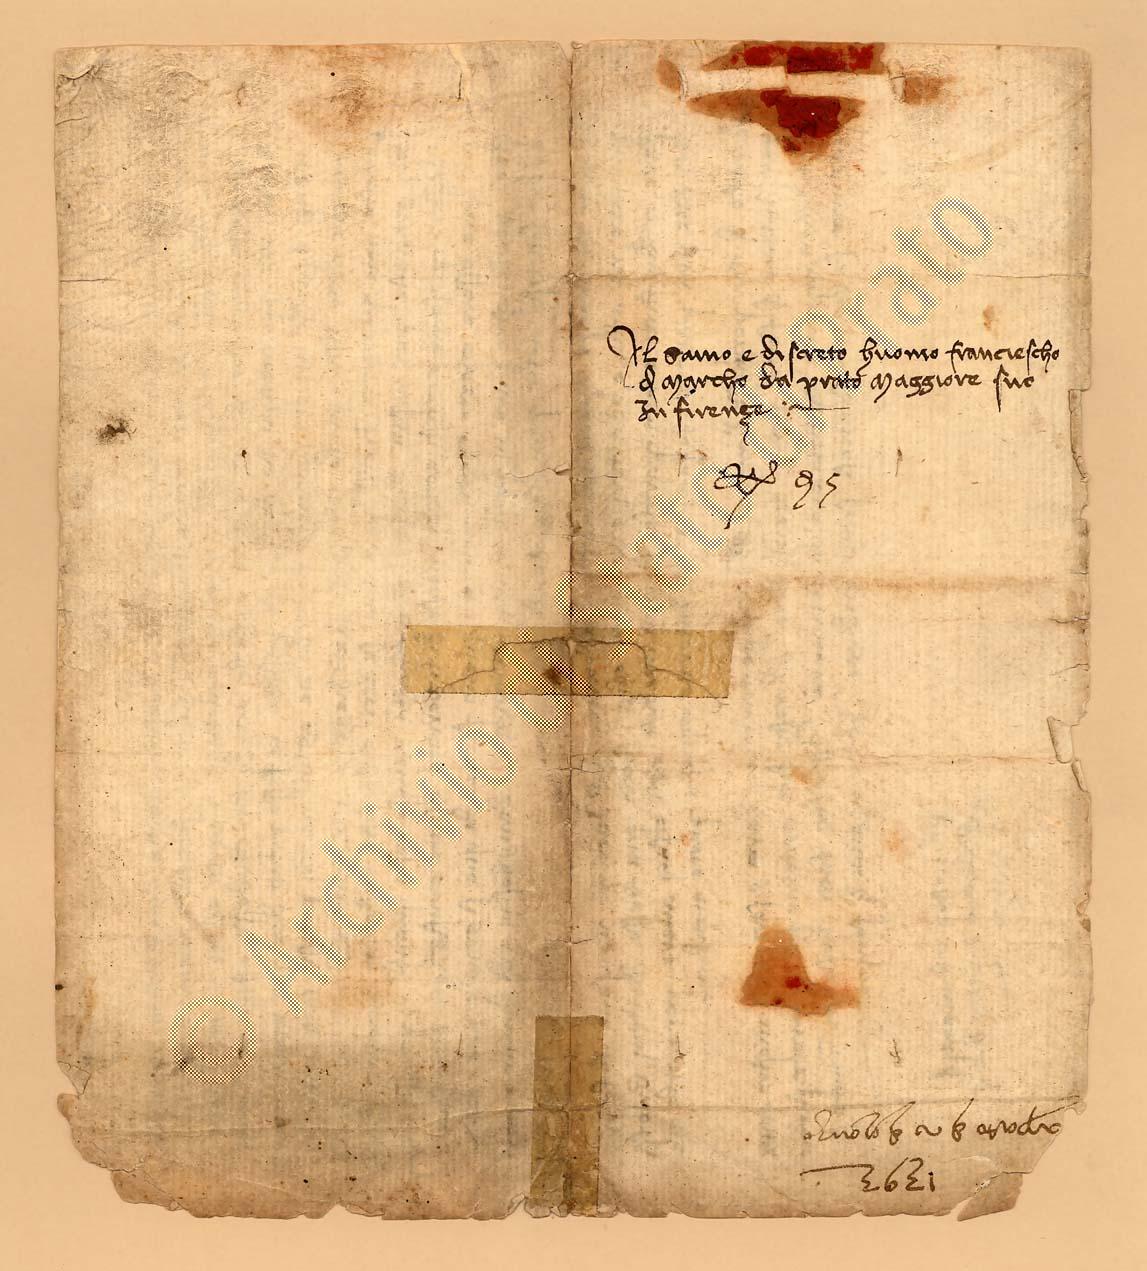 Il savio e discreto huomo francescho
di Marcho da prato Maggiore suo
In firenze
95
1393
© Archivio di Stato di Prato